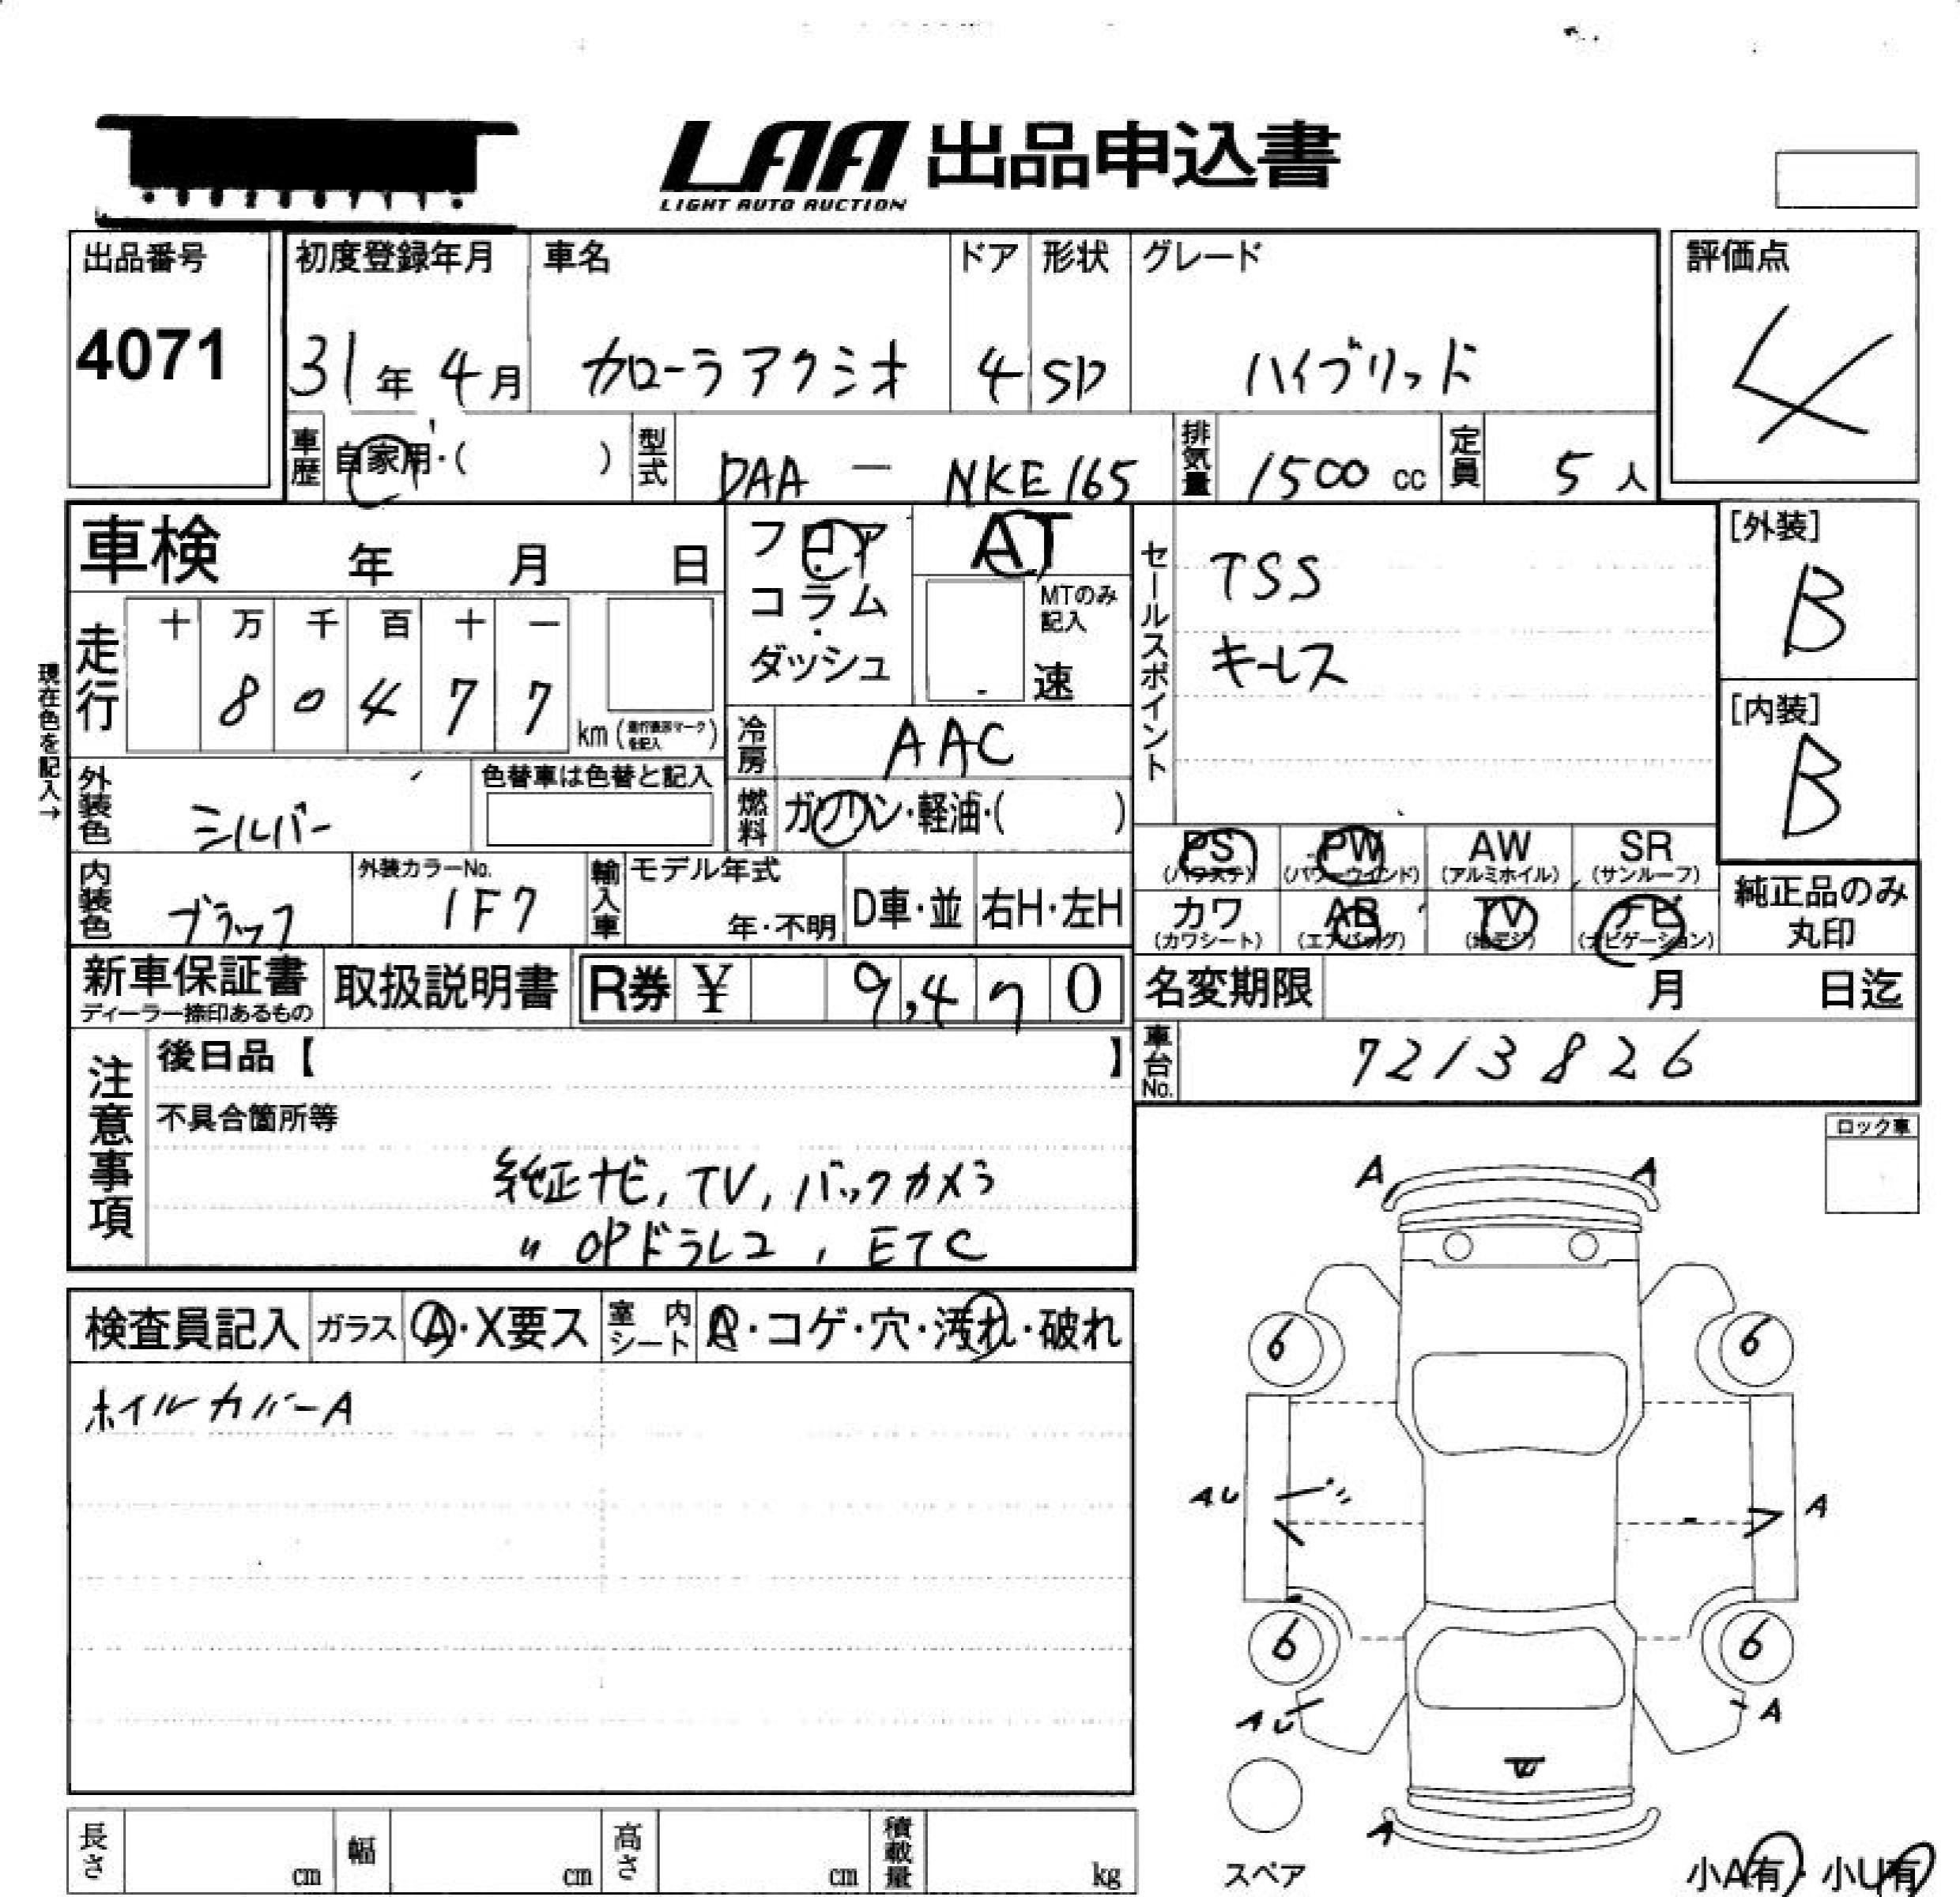 LAA 出品申込書
LIGHT AUTO AUCTION
出品番号 初度登録年月 車名 ドア 形状 グレード 評価点
4071 31年 4月 カローラアクシオ 4 SD ハイブリッド 4
車歴 自家用・( ) 型式 DAA - NKE165 排気量 1500 cc 定員 5 人
車検 年 月 日 フロア・コラム・ダッシュ AT MTのみ記入 速
セールスポイント
TSS
キーレス
[外装]
B
[内装]
B
現在色を記入→
走行 十 万 千 百 十 一
8 0 4 7 7 km
冷房 AAC
外装色 シルバー 色替車は色替と記入
燃料 ガソリン・軽油・( )
PS (パワステ) PW (パワーウインド) AW (アルミホイル) SR (サンルーフ)
カワ (カワシート) AB (エアバッグ) TV (地デジ) ナビ (ナビゲーション)
純正品のみ
丸印
内装色 ブラック 外装カラーNo. 1F7 輸入車 モデル年式 年・不明 D車・並 右H・左H
新車保証書 取扱説明書 R券 ¥ 9,470 名変期限 月 日迄
ディーラー捺印あるもの
車台No. 7213826
注意事項
後日品【 】
不具合箇所等
純正ナビ, TV, バックカメラ
〃 OPドラレコ, ETC
ロック車
検査員記入 ガラス A・X要ス 室内シート A・コゲ・穴・汚れ・破れ
ホイルカバーA
A A
6 6
AU A
6 6
AU A
U
A
スペア
小A有・小U有
長さ cm 幅 cm 高さ cm 積載量 kg